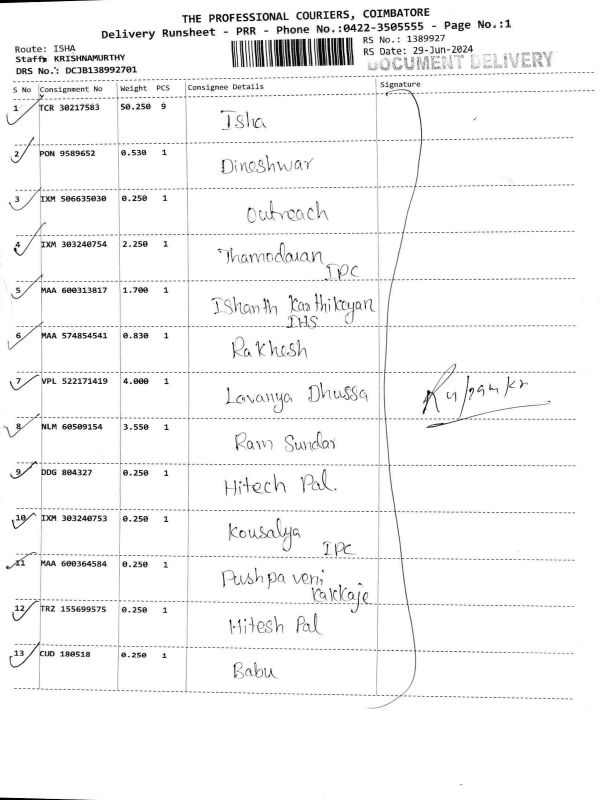 THE PROFESSIONAL COURIERS, COIMBATORE
Delivery Runsheet - PRR - Phone No.:0422-3505555 - Page No.:1
Route: ISHA
Staff: KRISHNAMURTHY
DRS No.: DCJB138992701
RS No.: 1389927
RS Date: 29-Jun-2024
DOCUMENT DELIVERY
S No Consignment No Weight PCS Consignee Details Signature
1 TCR 30217583 50.250 9 Isha
2 PON 9589652 0.530 1 Dineshwar
3 IXM 506635030 0.250 1 Outreach
4 IXM 303240754 2.250 1 Thamodaran
IPC
5 MAA 600313817 1.700 1 Ishanth Karthikeyan
IHS
6 MAA 574854541 0.830 1 Rakhesh
7 VPL 522171419 4.000 1 Lavanya Dhussa
8 NLM 60509154 3.550 1 Ram Sundar
9 DDG 804327 0.250 1 Hitech Pal.
10 IXM 303240753 0.250 1 Kousalya
IPC
11 MAA 600364584 0.250 1 Pushpa veni
Kakkaje
12 TRZ 155699575 0.250 1 Hitesh Pal
13 CUD 180518 0.250 1 Babu